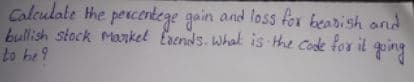 Calculate the percentege gain and loss for bearish and
bullish stock market trends. What is the code for it going
to be?